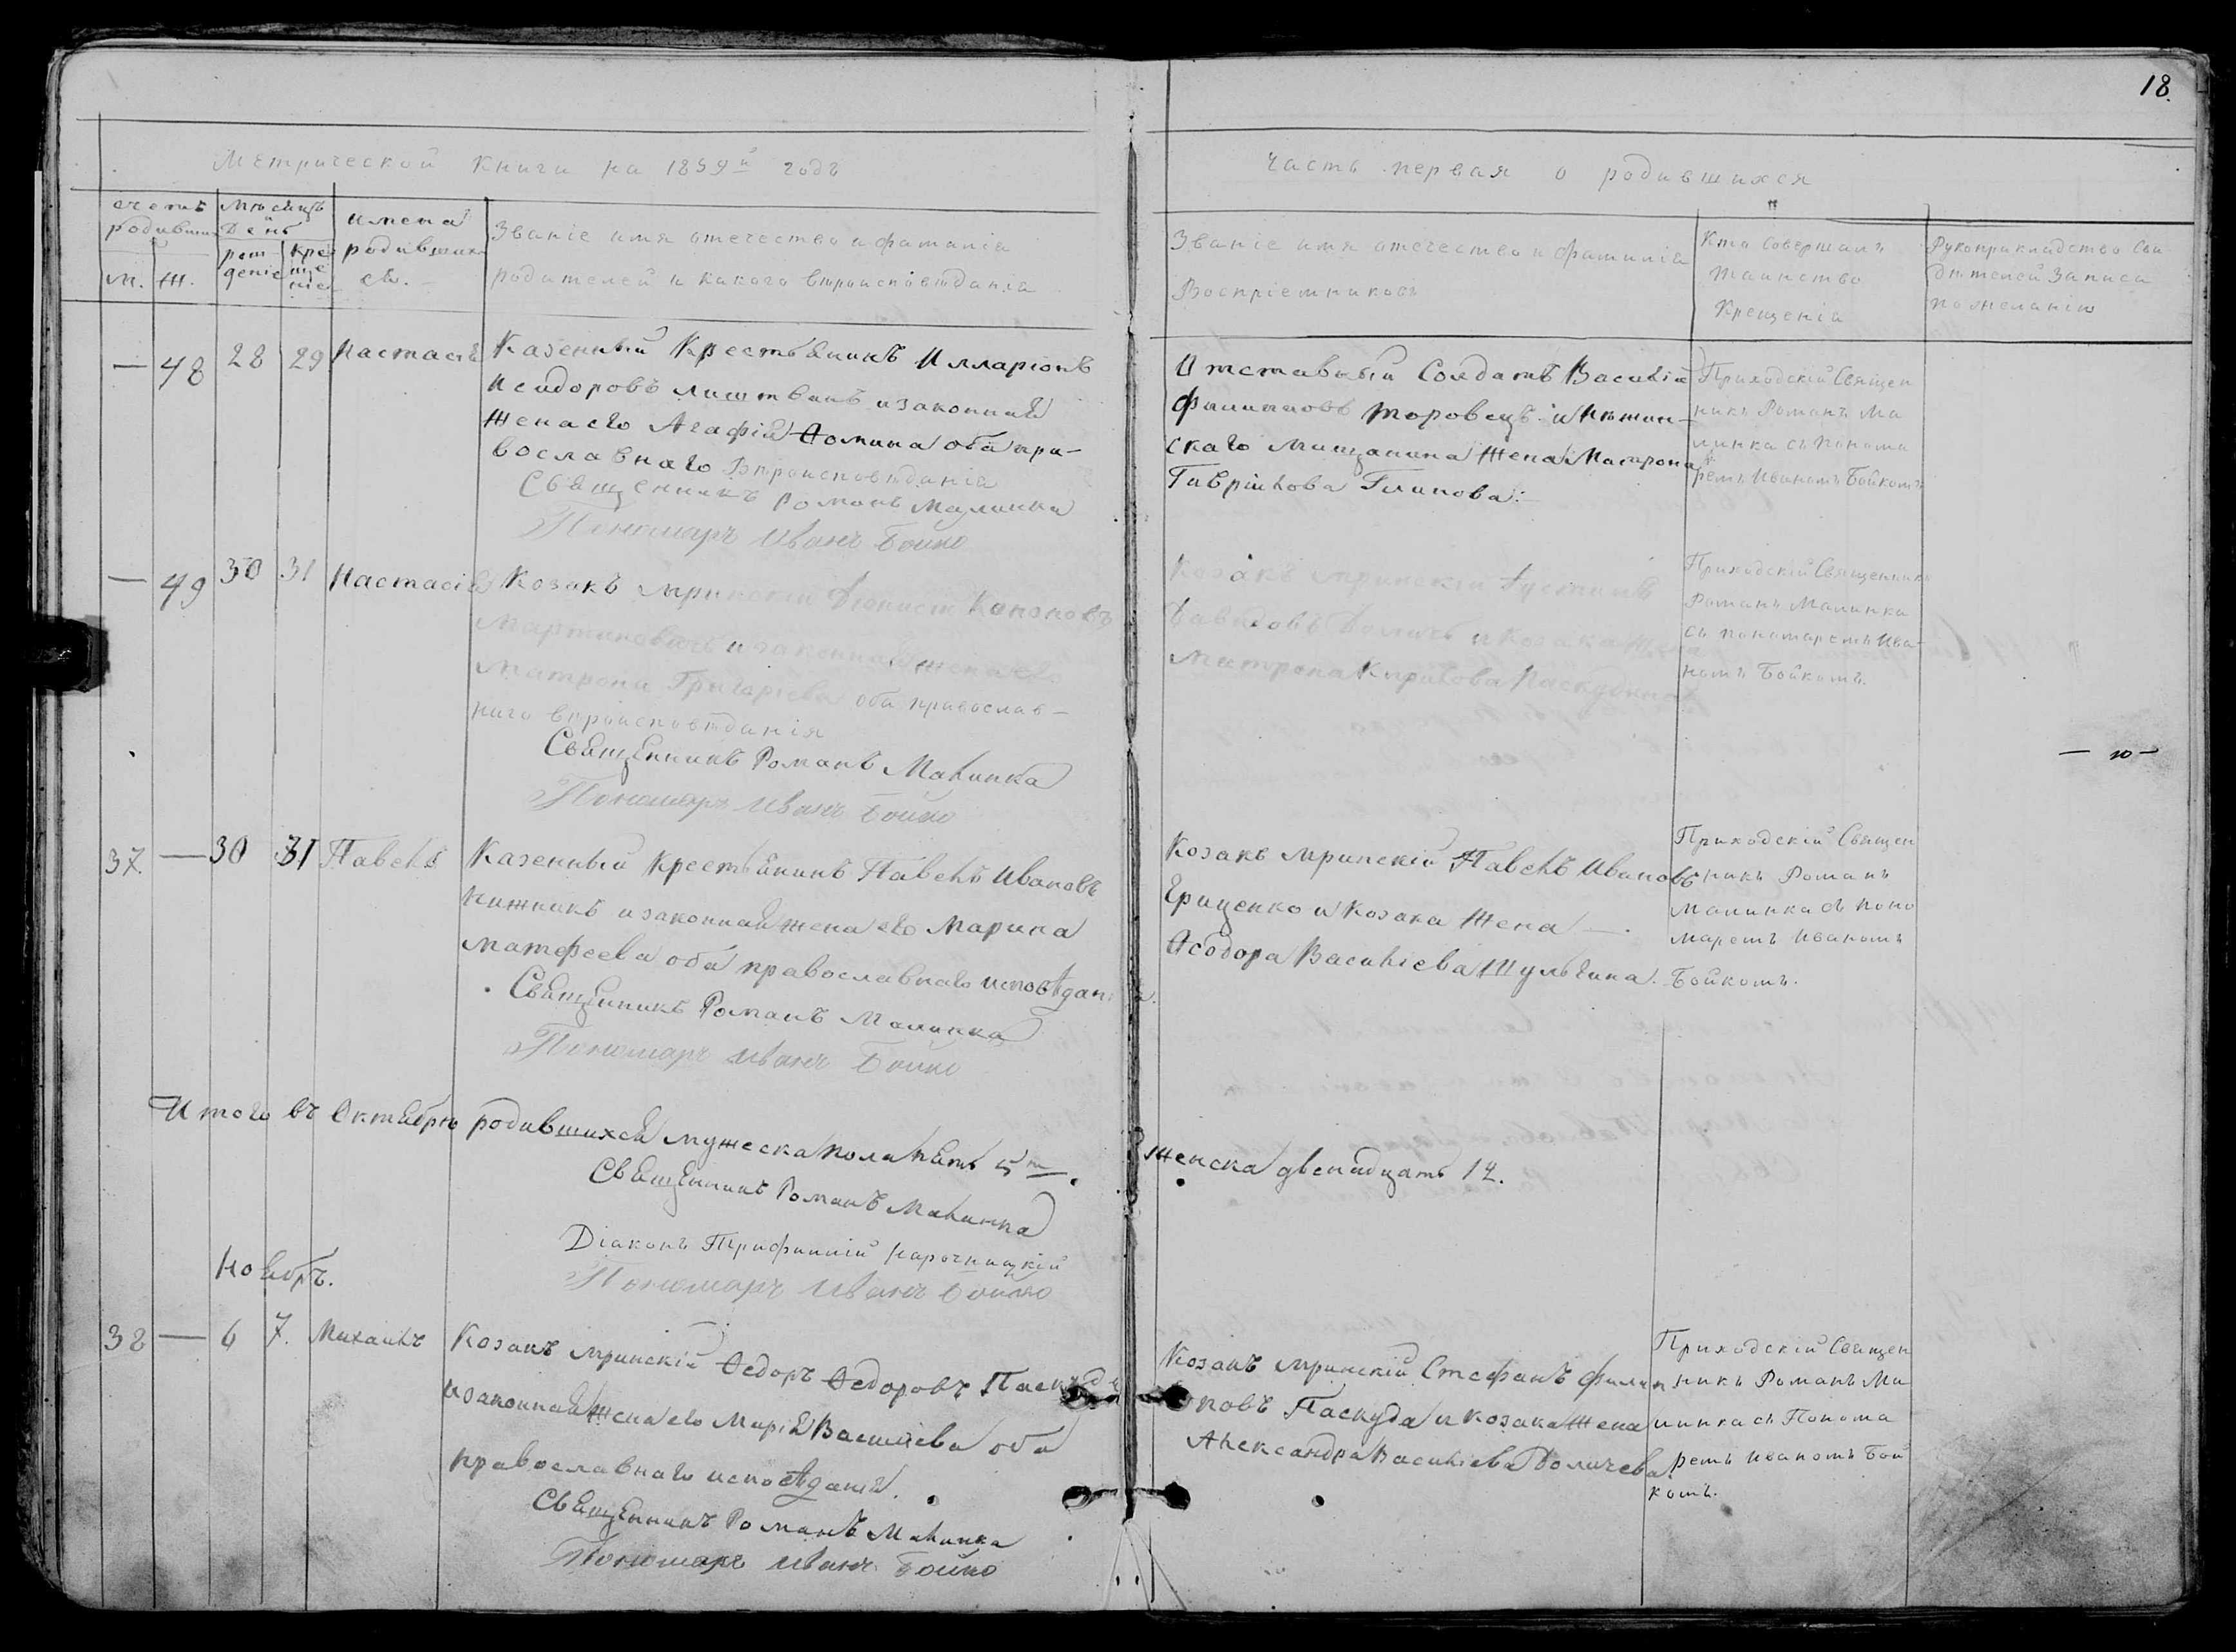 18.
Метрической Книги на 1859й годъ
Часть первая о родившихся
счетъ родивши
м. ж.
Мѣсяцъ и День
рож деніе
кре ще ніе
имена родивших ся.
Званіе имя отечество и фамилія
родителей и какого вѣроисповѣданія
Званіе имя отечество и фамилія
Воспріемниковъ
Кто Совершалъ
Таинство
Крещенія
Рукоприкладство Сви
дѣтелей Записи
по желанію
— 48 28 29 Настасія
Казенный Крестьянинъ Илларіонъ
Исидоровъ Лиштванъ и законная
жена его Агафія Ѳомина оба пра-
вославнаго Вѣроисповѣданія
Священникъ Романъ Малинка
Пономарь Иванъ Бойко
Отставный Солдатъ Василій
Филиповъ Торовецъ и Нѣжин-
скаго Мищанина жена Матрона
Гаврійлова Гилиова:
Приходскій Священ
никъ Романъ Ма
линка съ Понома
ремъ Иваномъ Бойкомъ
— 49 30 31 Настасія
Козакъ мринскій Кононовъ
Мартиновичъ и законная жена его
Матрона Григоріева оба православ-
наго вѣроисповѣданія
Священникъ Романъ Малинка
Пономарь Иванъ Бойко
Козакъ мринскій Іустинъ
Давидовъ и Козака жена
Матрона Кирилова
Приходскій Священникъ
Романъ Малинка
съ пономаремъ Ива-
номъ Бойкомъ.
— ю —
37. — 30 31 Павелъ
Казенный Крестьянинъ Павелъ Ивановъ
Кижникъ и законная жена его Марина
Матфеева оба православнаго исповѣданія.
Священникъ Романъ Малинка
Пономарь Иванъ Бойко
Козакъ мринскій Павелъ Ивановъ
Ерищенко и Козака жена —.
Ѳеодора Василіева Шульгина.
Приходскій Священ
никъ Романъ
Малинка съ поно
маремъ Иваномъ
Бойкомъ.
Итого въ Октябрѣ родившихся мужеска пола пять 5ть.
Женска двенадцать 12.
Священникъ Романъ Малинка
Діаконъ Трифиллій Нарочницкій
Пономарь Иванъ Бойко
Ноябрь.
38 — 6 7. Михаилъ
Козакъ мринскій Ѳедоръ Ѳедоровъ Паскуда
и законная жена его Марія Василіева оба
православнаго исповѣданія.
Священникъ Романъ Малинка
Пономарь Иванъ Бойко
Козакъ мринскій Стефанъ Филип
повъ Паскуда и козака жена
Александра Василіева Доличева.
Приходскій Священ
никъ Романъ Ма
линка съ Понома
ремъ Иваномъ Бой
комъ.